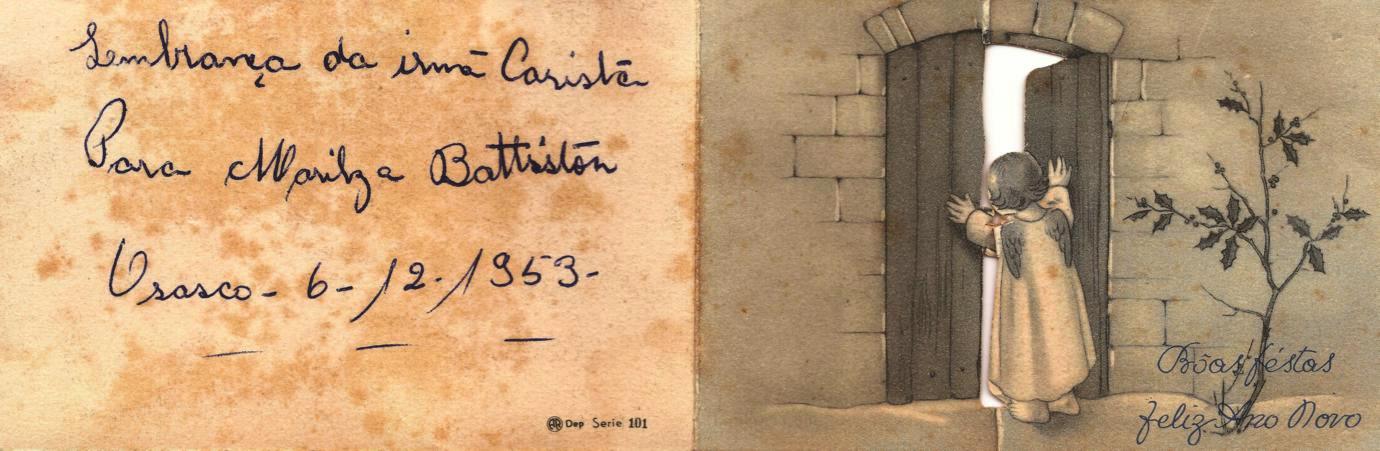 Lembrança da irmã Caristã
Para Marilza Battistōn
Osasco - 6 - 12 - 1953 -
AR Dep Serie 101
Bôas féstas
feliz Ano Novo